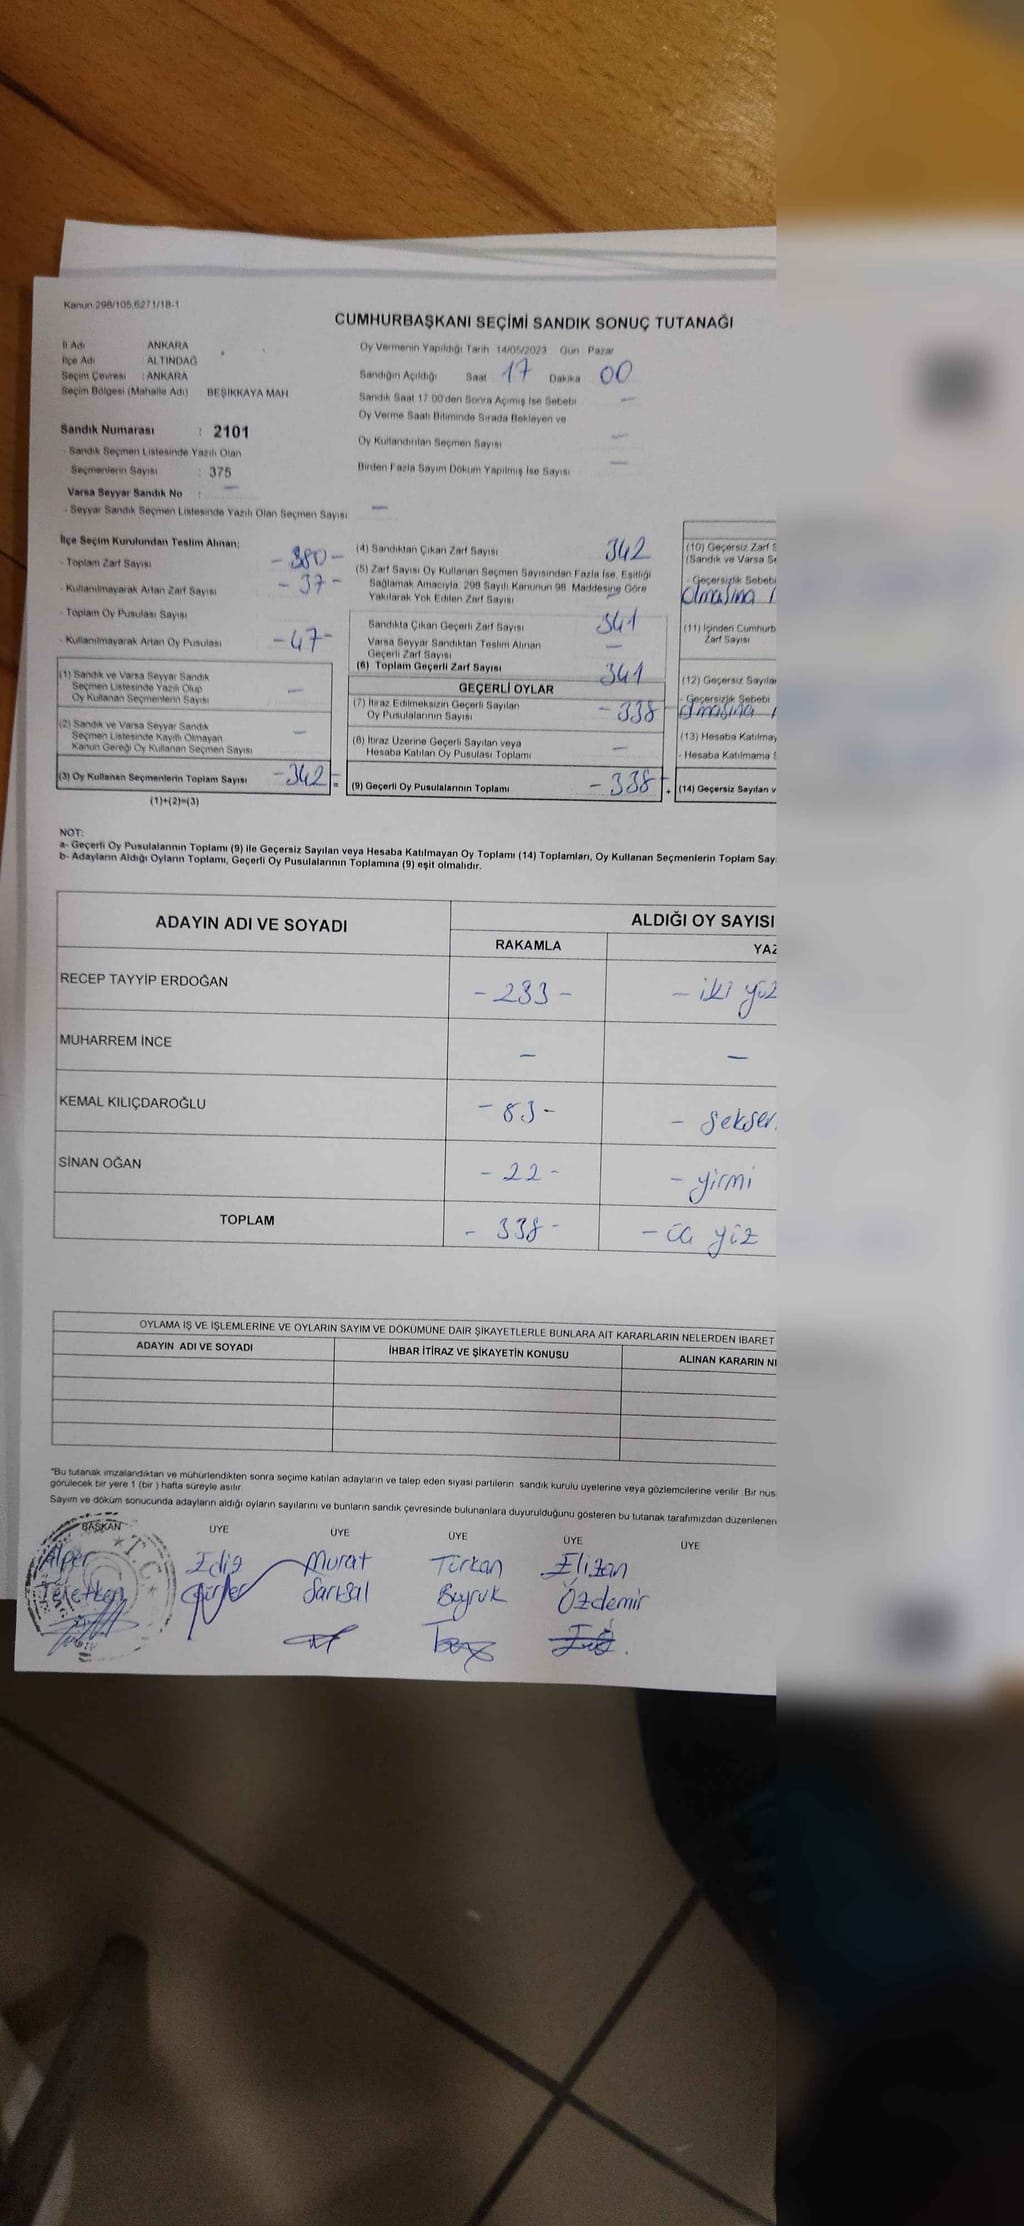 Kanun 298/105,6271/18-1
CUMHURBAŞKANI SEÇİMİ SANDIK SONUÇ TUTANAĞI
İl Adı ANKARA
İlçe Adı ALTINDAĞ
Seçim Çevresi : ANKARA
Seçim Bölgesi (Mahalle Adı) BEŞİKKAYA MAH
Oy Vermenin Yapıldığı Tarih 14/05/2023 Gün Pazar
Sandığın Açıldığı Saat 17 Dakika 00
Sandık Saat 17:00'den Sonra Açımış İse Sebebi –
Oy Verme Saati Bitiminde Sırada Bekleyen ve
Oy Kullandırılan Seçmen Sayısı –
Birden Fazla Sayım Döküm Yapılmış İse Sayısı –
Sandık Numarası : 2101
- Sandık Seçmen Listesinde Yazılı Olan
Seçmenlerin Sayısı : 375
Varsa Seyyar Sandık No : –
- Seyyar Sandık Seçmen Listesinde Yazılı Olan Seçmen Sayısı –
İlçe Seçim Kurulundan Teslim Alınan;
- Toplam Zarf Sayısı -380-
- Kullanılmayarak Artan Zarf Sayısı -37-
- Toplam Oy Pusulası Sayısı
- Kullanılmayarak Artan Oy Pusulası -47-
(1) Sandık ve Varsa Seyyar Sandık
Seçmen Listesinde Yazılı Olup
Oy Kullanan Seçmenlerin Sayısı –
(2) Sandık ve Varsa Seyyar Sandık
Seçmen Listesinde Kayıtlı Olmayan
Kanun Gereği Oy Kullanan Seçmen Sayısı –
(3) Oy Kullanan Seçmenlerin Toplam Sayısı -342-
(1)+(2)=(3)
(4) Sandıktan Çıkan Zarf Sayısı 342
(5) Zarf Sayısı Oy Kullanan Seçmen Sayısından Fazla İse, Eşitliği
Sağlamak Amacıyla, 298 Sayılı Kanunun 98. Maddesine Göre
Yakılarak Yok Edilen Zarf Sayısı –
Sandıkta Çıkan Geçerli Zarf Sayısı 341
Varsa Seyyar Sandıktan Teslim Alınan
Geçerli Zarf Sayısı –
(6) Toplam Geçerli Zarf Sayısı 341
GEÇERLİ OYLAR
(7) İtiraz Edilmeksizin Geçerli Sayılan
Oy Pusulalarının Sayısı -338
(8) İtiraz Üzerine Geçerli Sayılan veya
Hesaba Katılan Oy Pusulası Toplamı –
(9) Geçerli Oy Pusulalarının Toplamı -338-
(10) Geçersiz Zarf
(Sandık ve Varsa
- Geçersizlik Sebebi
olmasına
(11) İçinden
Zarf Sayısı
(12) Geçersiz
- Geçersizlik Sebebi
olmasına
(13) Hesaba
- Hesaba Katılmama
(14) Geçersiz Sayılan
NOT:
a- Geçerli Oy Pusulalarının Toplamı (9) ile Geçersiz Sayılan veya Hesaba Katılmayan Oy Toplamı (14) Toplamları, Oy Kullanan Seçmenlerin Toplam
b- Adayların Aldığı Oyların Toplamı, Geçerli Oy Pusulalarının Toplamına (9) eşit olmalıdır.
ADAYIN ADI VE SOYADI
ALDIĞI OY SAYISI
RAKAMLA
RECEP TAYYİP ERDOĞAN -233- - iki yüz
MUHARREM İNCE – –
KEMAL KILIÇDAROĞLU -83- -
SİNAN OĞAN -22- - yirmi
TOPLAM -338- - yüz
OYLAMA İŞ VE İŞLEMLERİNE VE OYLARIN SAYIM VE DÖKÜMÜNE DAİR ŞİKAYETLERLE BUNLARA AİT KARARLARIN NELERDEN İBARET
ADAYIN ADI VE SOYADI İHBAR İTİRAZ VE ŞİKAYETİN KONUSU ALINAN KARARIN
"Bu tutanak imzalandıktan ve mühürlendikten sonra seçime katılan adayların ve talep eden siyasi partilerin sandık kurulu üyelerine veya gözlemcilerine verilir. Bir
görülecek bir yere 1 (bir ) hafta süreyle asılır.
Sayım ve döküm sonucunda adayların aldığı oyların sayılarını ve bunların sandık çevresinde bulunanlara duyurulduğunu gösteren bu tutanak tarafımızdan
BAŞKAN ÜYE ÜYE ÜYE ÜYE ÜYE
Alper Murat Türkan
Özdemir
T.C.